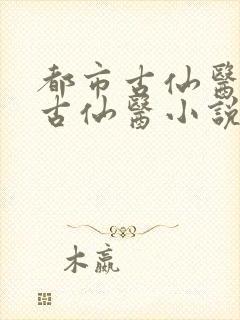 都市古仙醫
古仙醫小說
木嬴